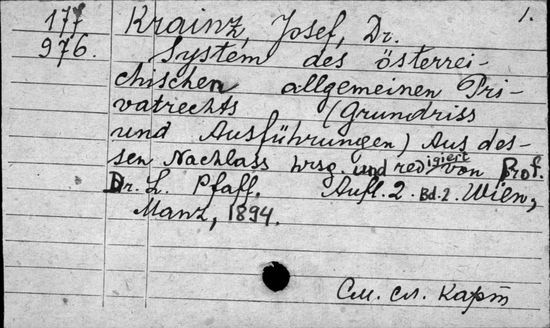 177 Krainz, Josef, Dr. 1.
976. System des österrei-
chischen allgemeinen Pri-
vatrechts (Grundriss
und Ausführungen) Aus des-
sen Nachlass hrsg. und redigiert von Prof.
Dr. L. Pfaff. Aufl. 2. Bd. 2. Wien,
Manz, 1894.
См. сл. карт